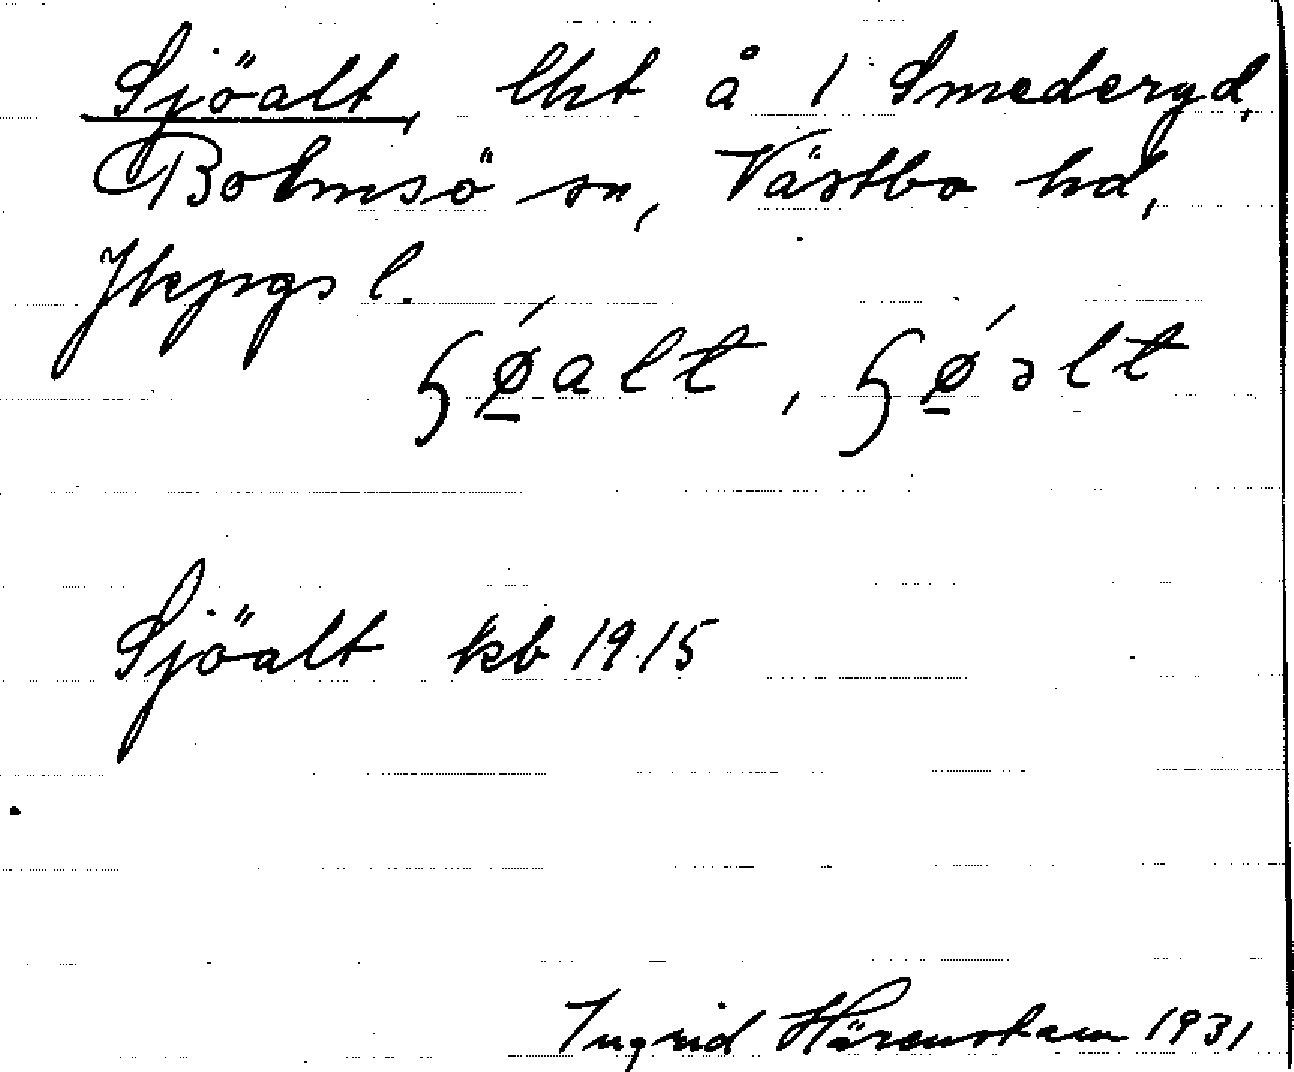 Sjöalt, lht å 1 Smederyd,
Bolmsö sn, Västbo hd,
Jkpgs l.
ɧǿ̱alt, ɧǿ̱əlt
Sjöalt kb 1915
Ingrid Härenstam 1931